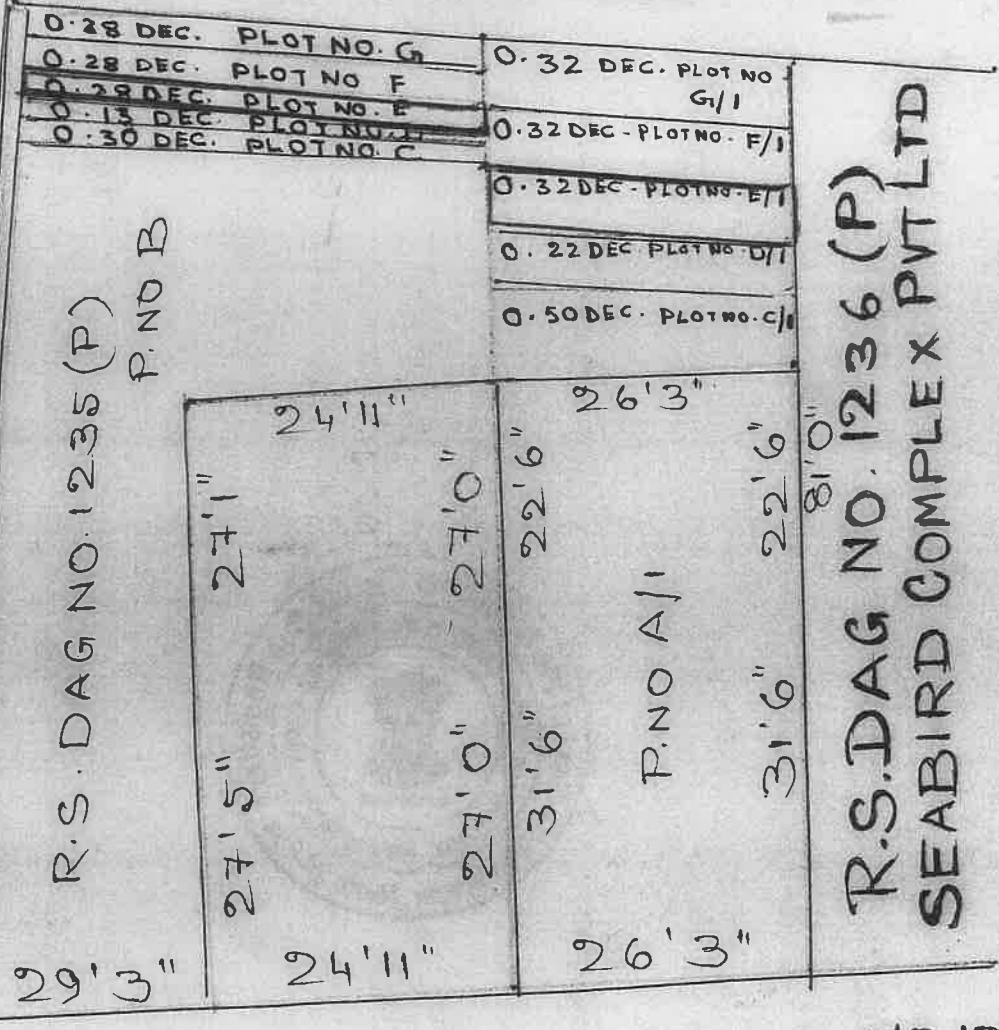 0.28 DEC. PLOT NO. G
0.28 DEC. PLOT NO F
0.28 DEC. PLOT NO. E
0.13 DEC. PLOT NO. D
0.30 DEC. PLOT NO. C
0.32 DEC. PLOT NO
G/1
0.32 DEC - PLOT NO. F/1
0.32 DEC - PLOT NO - E/1
0.22 DEC PLOT NO - D/1
0.50 DEC. PLOT NO. C/1
R.S. DAG NO. 1235 (P)
P. NO B
24'11"
27'1"
27'0"
27'5"
27'0"
24'11"
29'3"
26'3"
22'6"
22'6"
31'6"
P. NO A/1
31'6"
26'3"
81'0"
R.S. DAG NO. 1236 (P)
SEABIRD COMPLEX PVT LTD